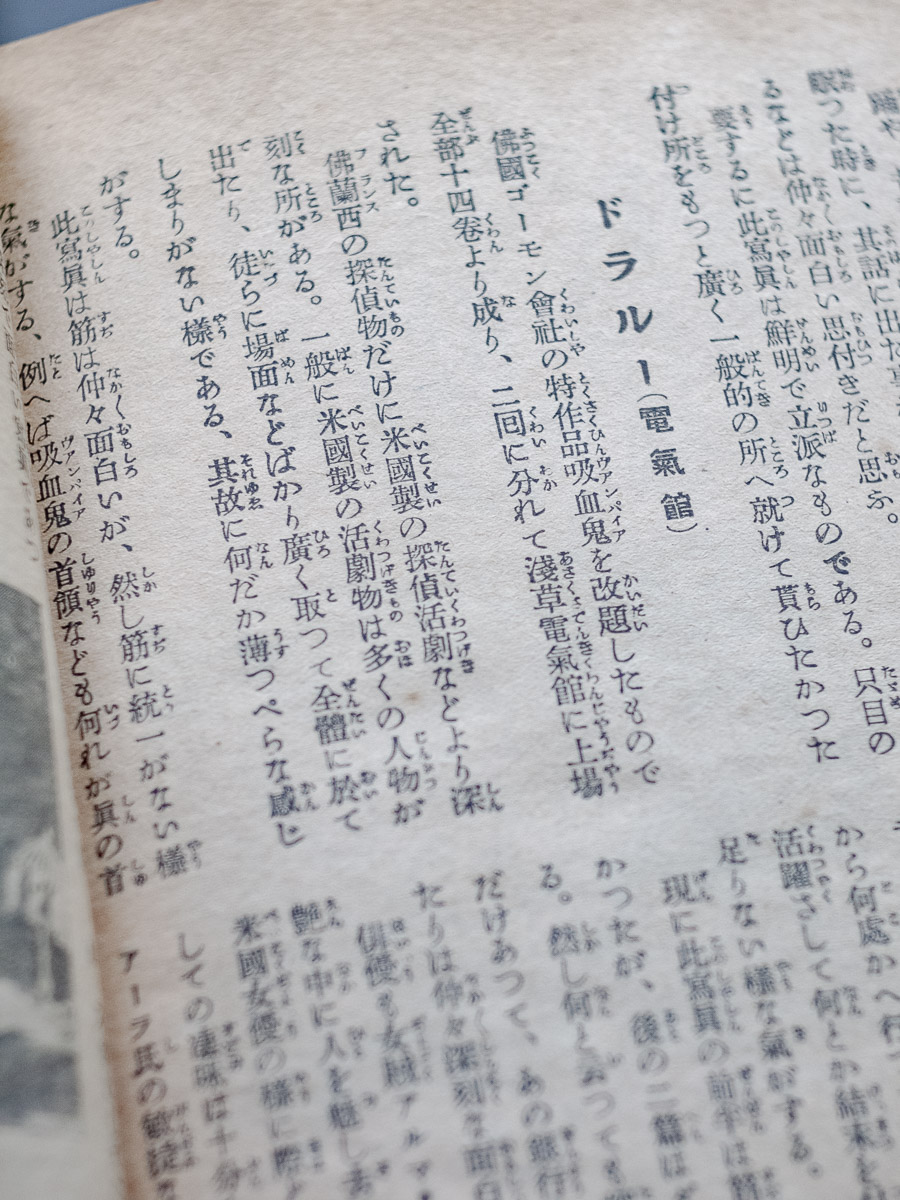 眠つた時に、其話に出た
るなどは仲々面白い思付きだと思ふ。
要するに此寫眞は鮮明で立派なものである。只目の
付け所をもつと廣く一般的の所へ就けて貰ひたかつた
ドラルー(電氣館)
佛國ゴーモン會社の特作品吸血鬼を改題したもので
全部十四卷より成り、二回に分れて淺草電氣館に上場
された。
佛蘭西の探偵物だけに米國製の探偵活劇などより深
刻な所がある。一般に米國製の活劇物は多くの人物が
出たり、徒らに場面などばかり廣く取つて全體に於て
しまりがない樣である、其故に何だか薄つぺらな感じ
がする。
此寫眞は筋は仲々面白いが、然し筋に統一がない樣
な氣がする、例へば吸血鬼の首領なども何れが眞の首
から何處かへ行
活躍さして何とか結末を
足りない樣な氣がする。
現に此寫眞の前半は
かつたが、後の二篇は
る。然し何と云つても
だけあつて、あの銀行
たりは仲々深刻な面白
俳優も女賊アルマ
艶な中に人を魅し去
米國女優の樣に際
しての凄味は十分
アーラ氏の